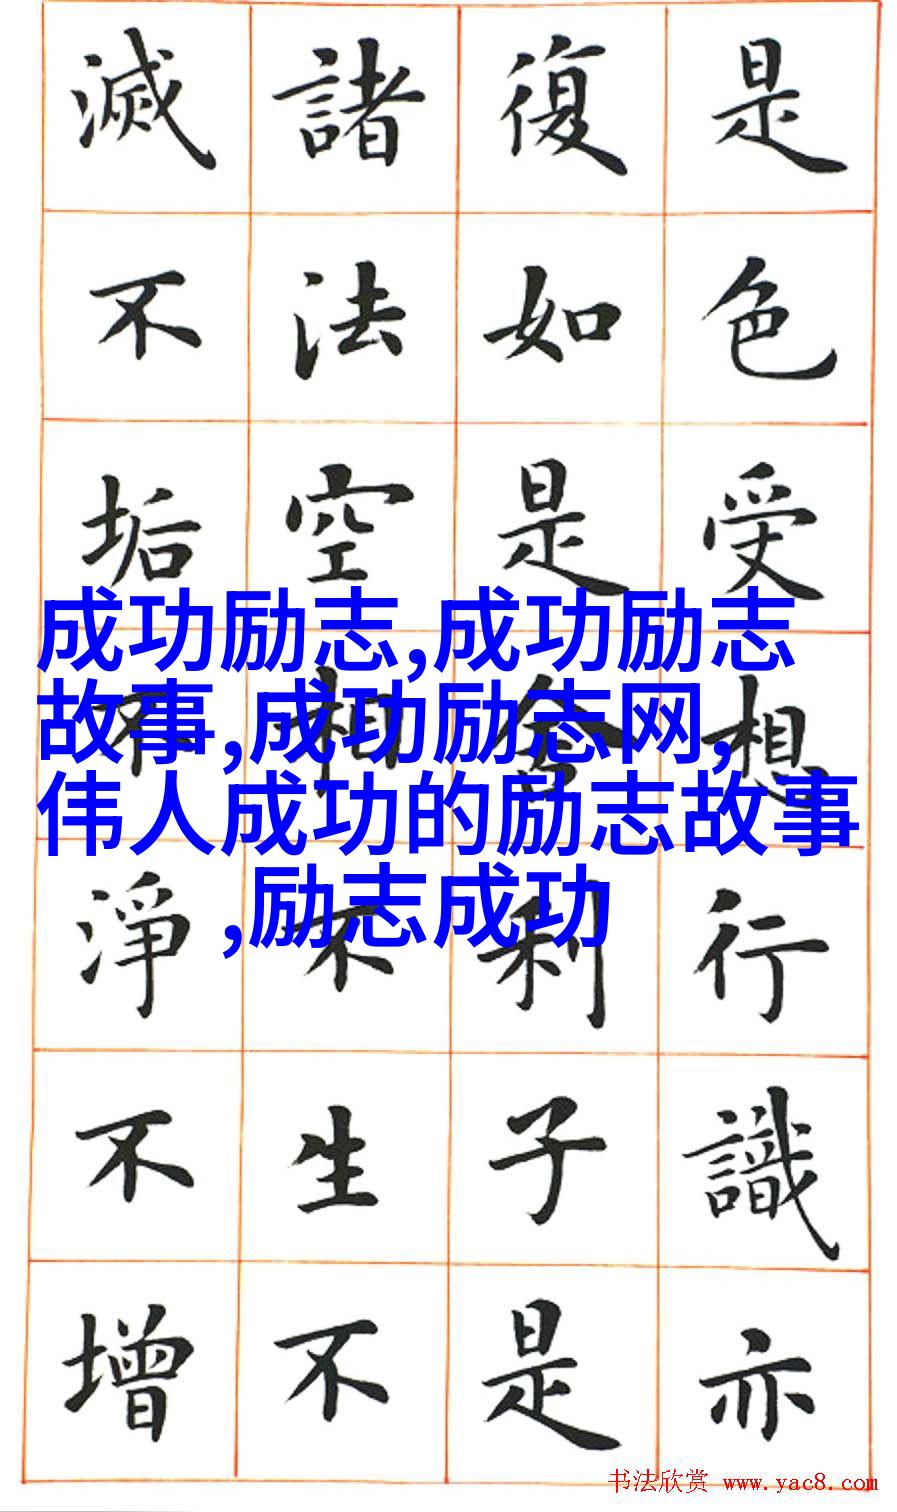 是色受想行識亦
復如是舍利子是
諸法空相不生不
滅不垢不淨不增
成功励志,成功励志
故事,成功励志网,
伟人成功的励志故事
,励志成功
书法欣赏 www.yac8.com